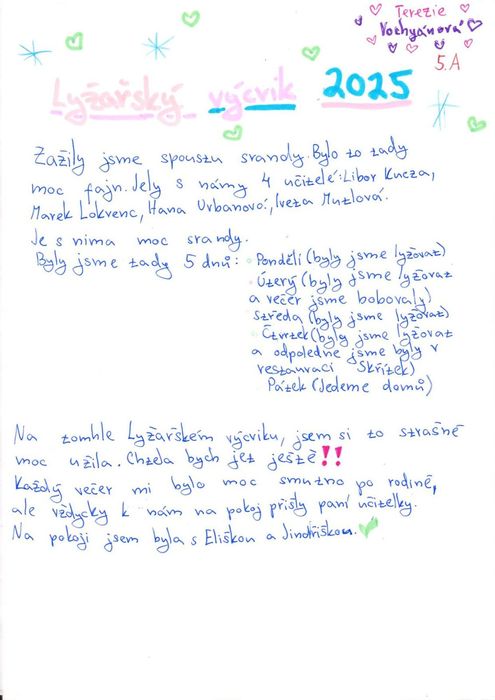 Terezie
Vozhyánová
5.A
Lyžařský výcvik 2025
Zažily jsme spoustu srandy. Bylo to tady
moc fajn. Jely s námy 4 učitelé: Libor Kucza,
Marek Lokvenc, Hana Urbanová, Iveta Mutlová.
Je s nima moc srandy.
Byly jsme tady 5 dnů: Pondělí (byly jsme lyžovat)
Úterý (byly jsme lyžovat
a večer jsme bobovaly)
středa (byly jsme lyžovat)
Čtvrtek (byly jsme lyžovat
a odpoledne jsme byly v
restauraci Skřítek)
Pátek (Jedeme domů)
Na tomhle Lyžařském výcviku, jsem si to strašně
moc užila. Chtěla bych jet ještě !!
Každý večer mi bylo moc smutno po rodině,
ale vždycky k nám na pokoj přišly paní učitelky.
Na pokoji jsem byla s Eliškou a Jindřiškou.